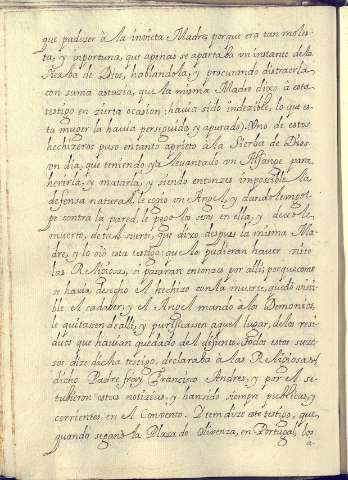 que padezer à la invicta Madre, porque era tan moles-
ta, y inportuna, que apenas se apartaba un instante de la
Sierba de Dios, hablandola, y procurando distraerla
con suma astuzia, que la misma Madre dixo à esta
testigo en zierta ocasion; havia sido indezible, lo que es-
ta muger la havia perseguido y apurado). Uno de estos
hechizeros puso entanto aprieto à la Sierba de Dios
un dia, que teniendo ya levantado un Alfange para
herirla, y matarla, y siendo entonzes impossible la
defensa natural, le cojio un Angel, y dandole un gol-
pe contra la pared, le pego los sesos en ella, y quedó
muerto, de tal suerte, que dixo despues la misma Ma-
dre, y lo oió esta testigo: que lo pudieran haver visto
las Religiosas, si pasaran entonzes por alli; porque como
se havia desecho el hechizo con la muerte, quedó visi-
ble el cadaber; y el Angel mando à los Demonios,
le quitassen de alli, y purificassen aquel lugar, de los resi-
duos que havian quedado del difunto. Todos estos suce-
sos dize dicha testigo, declaraba à las Religiosas el
dicho Padre fray Francisco Andres; y por el se
tubieron estas notizias, y han sido siempre publicas, y
corrientes en el Convento. Item dize este testigo, que
quando se ganó la Plaza de Olivenza, en Portugal, los